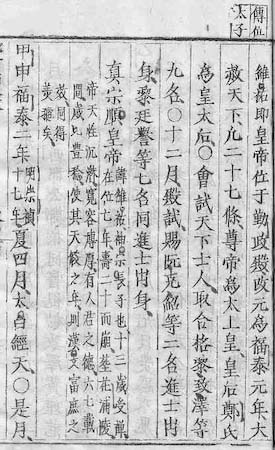 傳位
太子
維祐即皇帝位于勤政殿改元為福泰元年大
赦天下凡二十七條尊帝為太上皇皇后鄭氏
為皇太后○會試天下士人取合格黎致澤等
九名○十二月殿試賜阮克紹等二名進士出
身黎廷譽等七名同進士出身
真宗順皇帝
諱維祐神宗長子也十三歲受禪
在位七年壽二十而崩葬花浦陵
帝天性沉潜寛容博厚有人君之德六七載
間歲比豐稔使其天假之年則漢文富庶之
效
矣
甲申福泰二年明崇禎十七年夏四月太白經天○是月